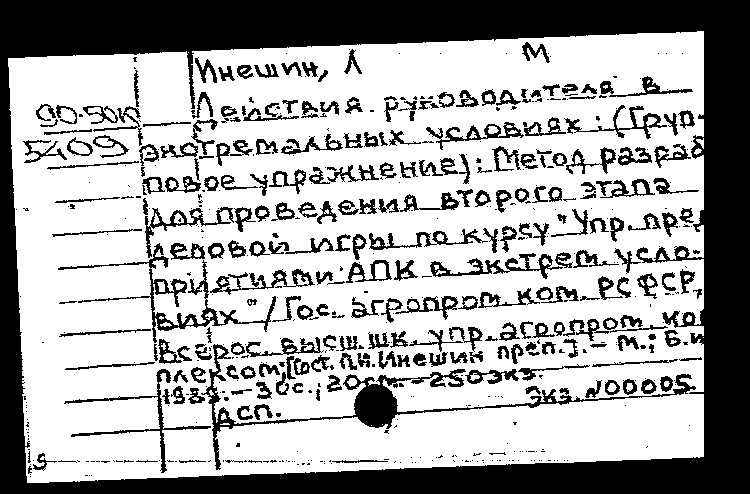 Инешин, Л
М
90-50к
Действия руководителя в
5409
экстремальных условиях: (Груп-
повое упражнение): Метод разраб
для проведения второго этапа
деловой игры по курсу "Упр. пред
приятиями АПК в экстрем. усло-
виях" / Гос. агропром. ком. РСФСР,
Всерос. высш. шк. упр. агропром. ком
плексом; [Сост. Л.И. Инешин преп.]. - М.; Б.и
1989. - 30с.; 20см. - 250экз.
Экз. N00005.
ДСП.